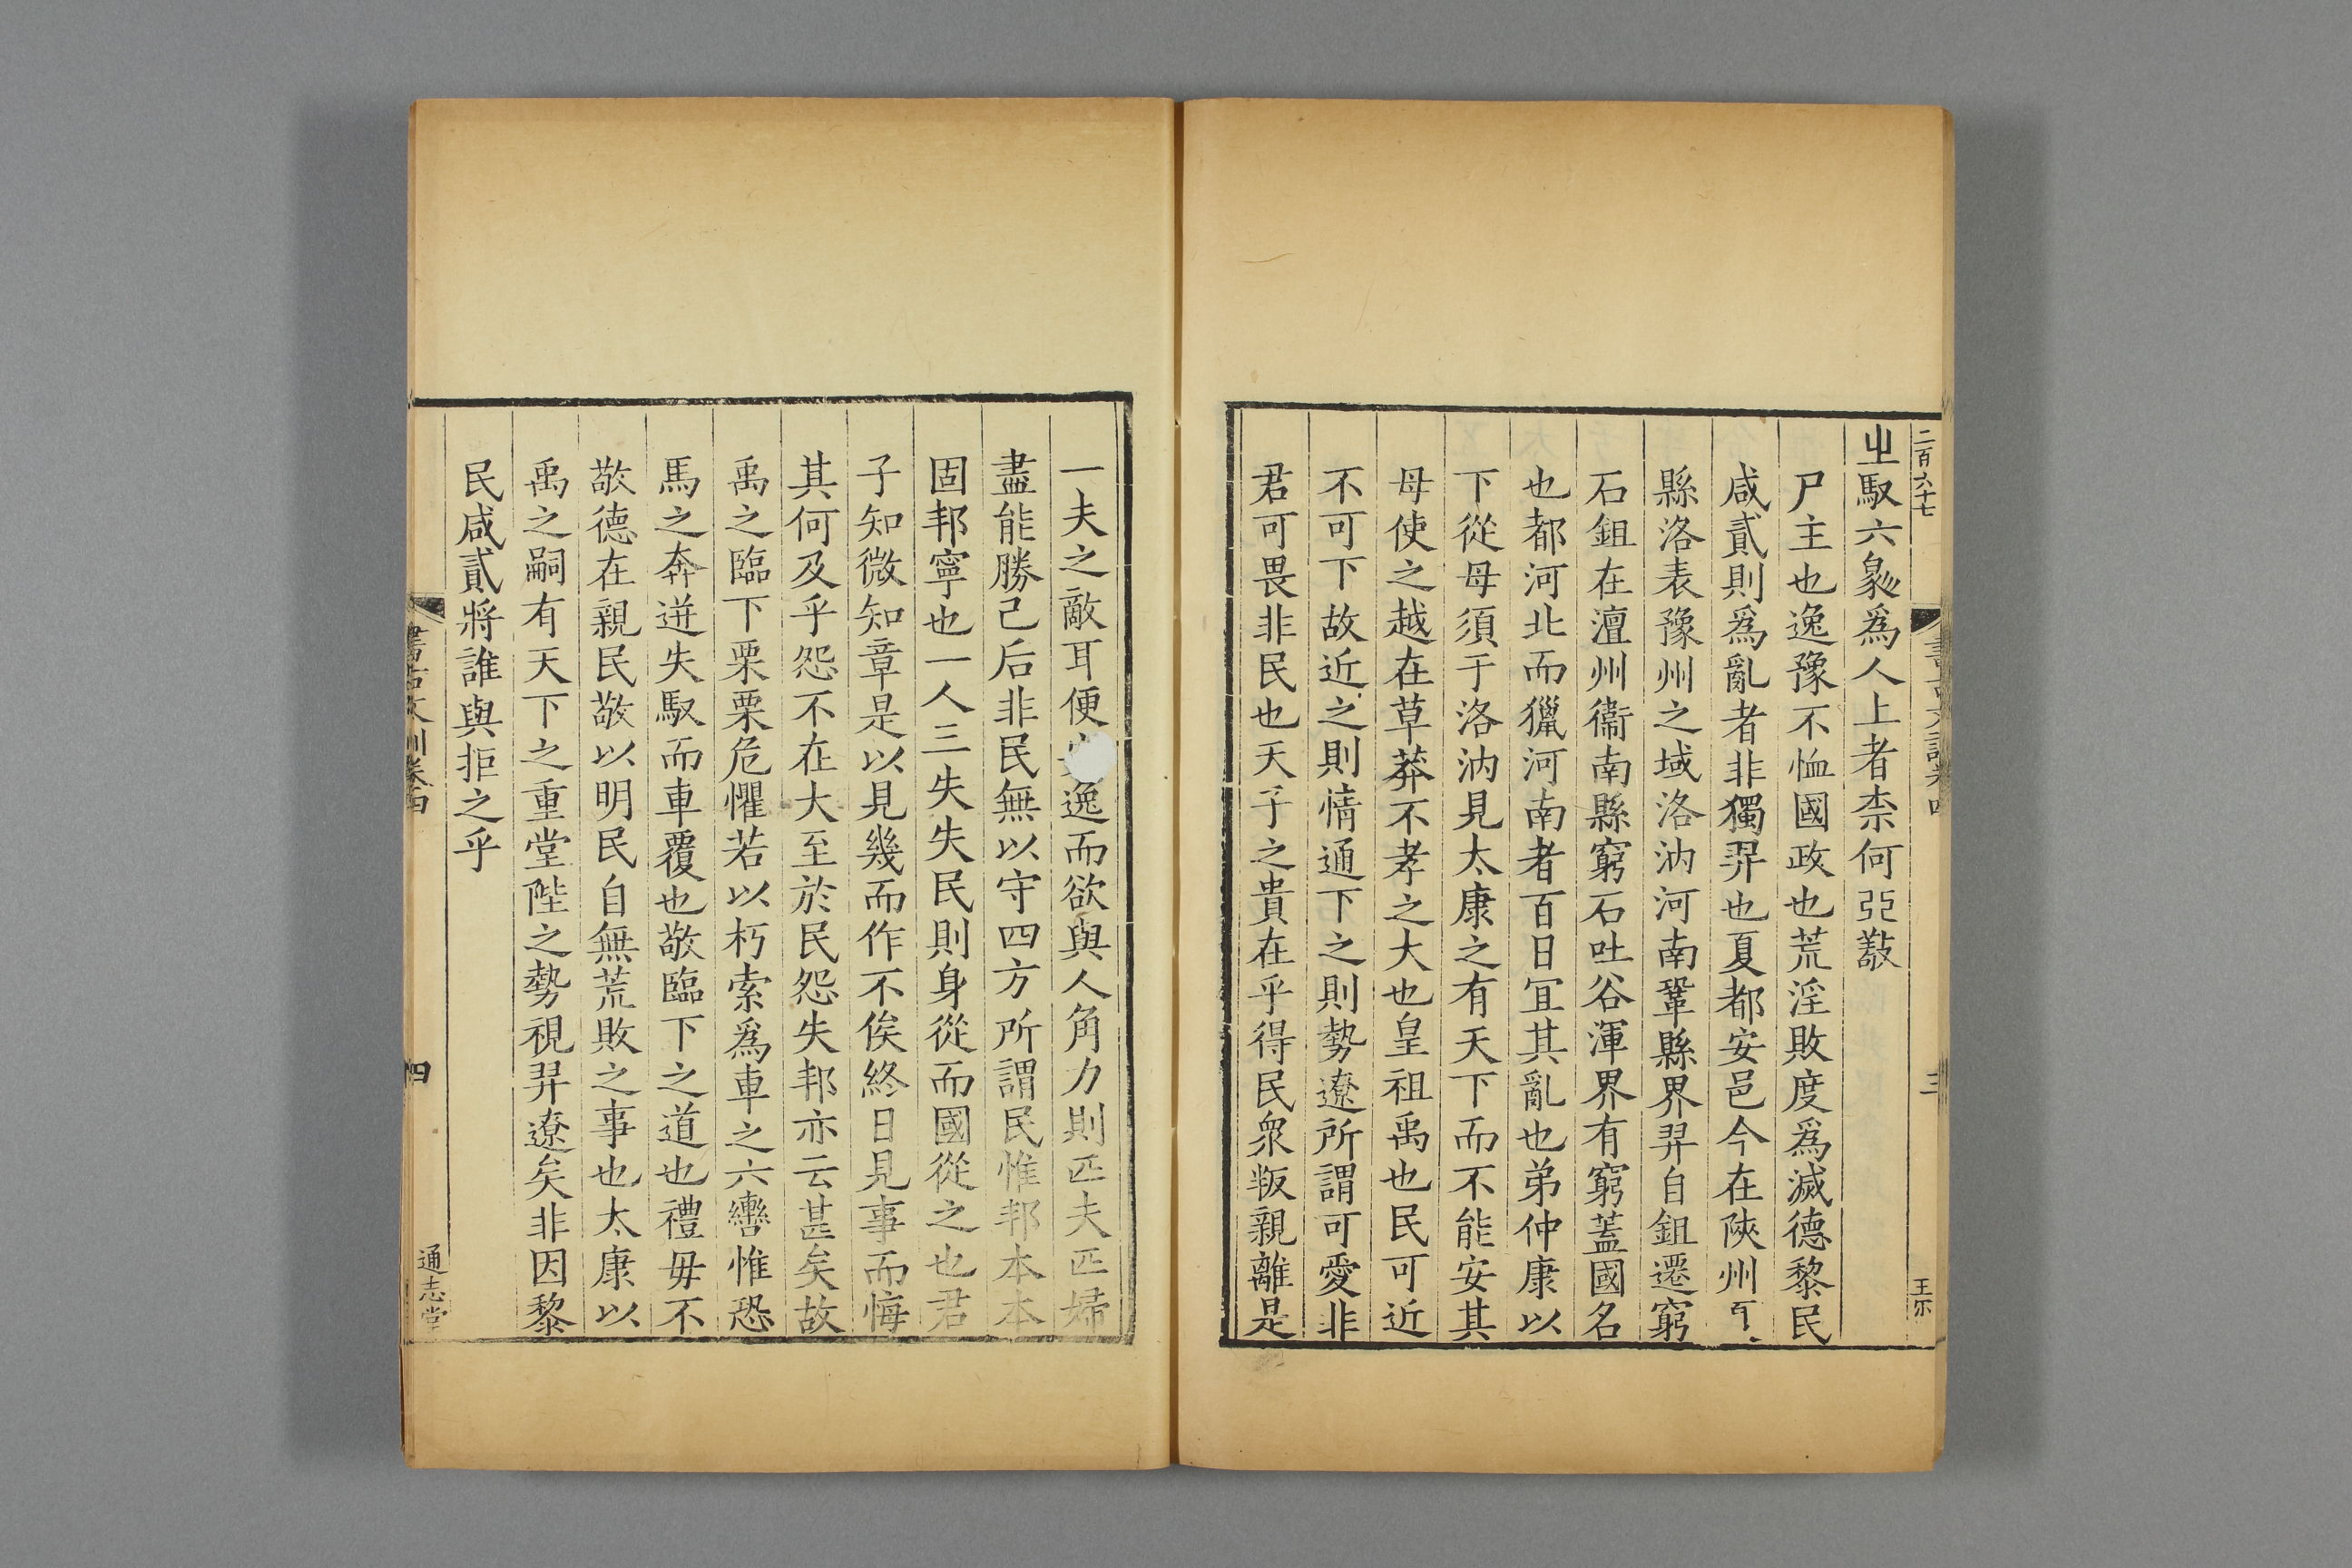 二百六十七
㞢馭六𠂤爲人上者柰何弫敬
尸主也逸豫不恤國政也荒淫敗度爲滅德黎民
咸貳則爲亂者非獨羿也夏都安邑今在陝州
縣洛表豫州之域洛汭河南鞏縣界羿自鉏遷窮
石鉏在澶州衞南縣窮石吐谷渾界有窮蓋國名
也都河北而獵河南者百日宜其亂也弟仲康以
下從母須于洛汭見太康之有天下而不能安其
母使之越在草莽不孝之大也皇祖禹也民可近
不可下故近之則情通下之則勢遼所謂可愛非
君可畏非民也天子之貴在乎得民衆叛親離是
三
王尔
一夫之敵耳便逸而欲與人角力則匹夫匹婦
盡能勝己后非民無以守四方所謂民惟邦本本
固邦寧也一人三失失民則身從而國從之也君
子知微知章是以見幾而作不俟終日見事而悔
其何及乎怨不在大至於民怨失邦亦云甚矣故
禹之臨下栗栗危懼若以朽索爲車之六轡惟恐
馬之奔逬失馭而車覆也敬臨下之道也禮毋不
敬德在親民敬以明民自無荒敗之事也太康以
禹之嗣有天下之重堂陛之勢視羿遼矣非因黎
民咸貳將誰與拒之乎
書古文訓卷四
四
通志堂